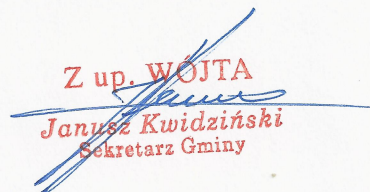 Z up. WÓJTA
Janusz Kwidziński
Sekretarz Gminy